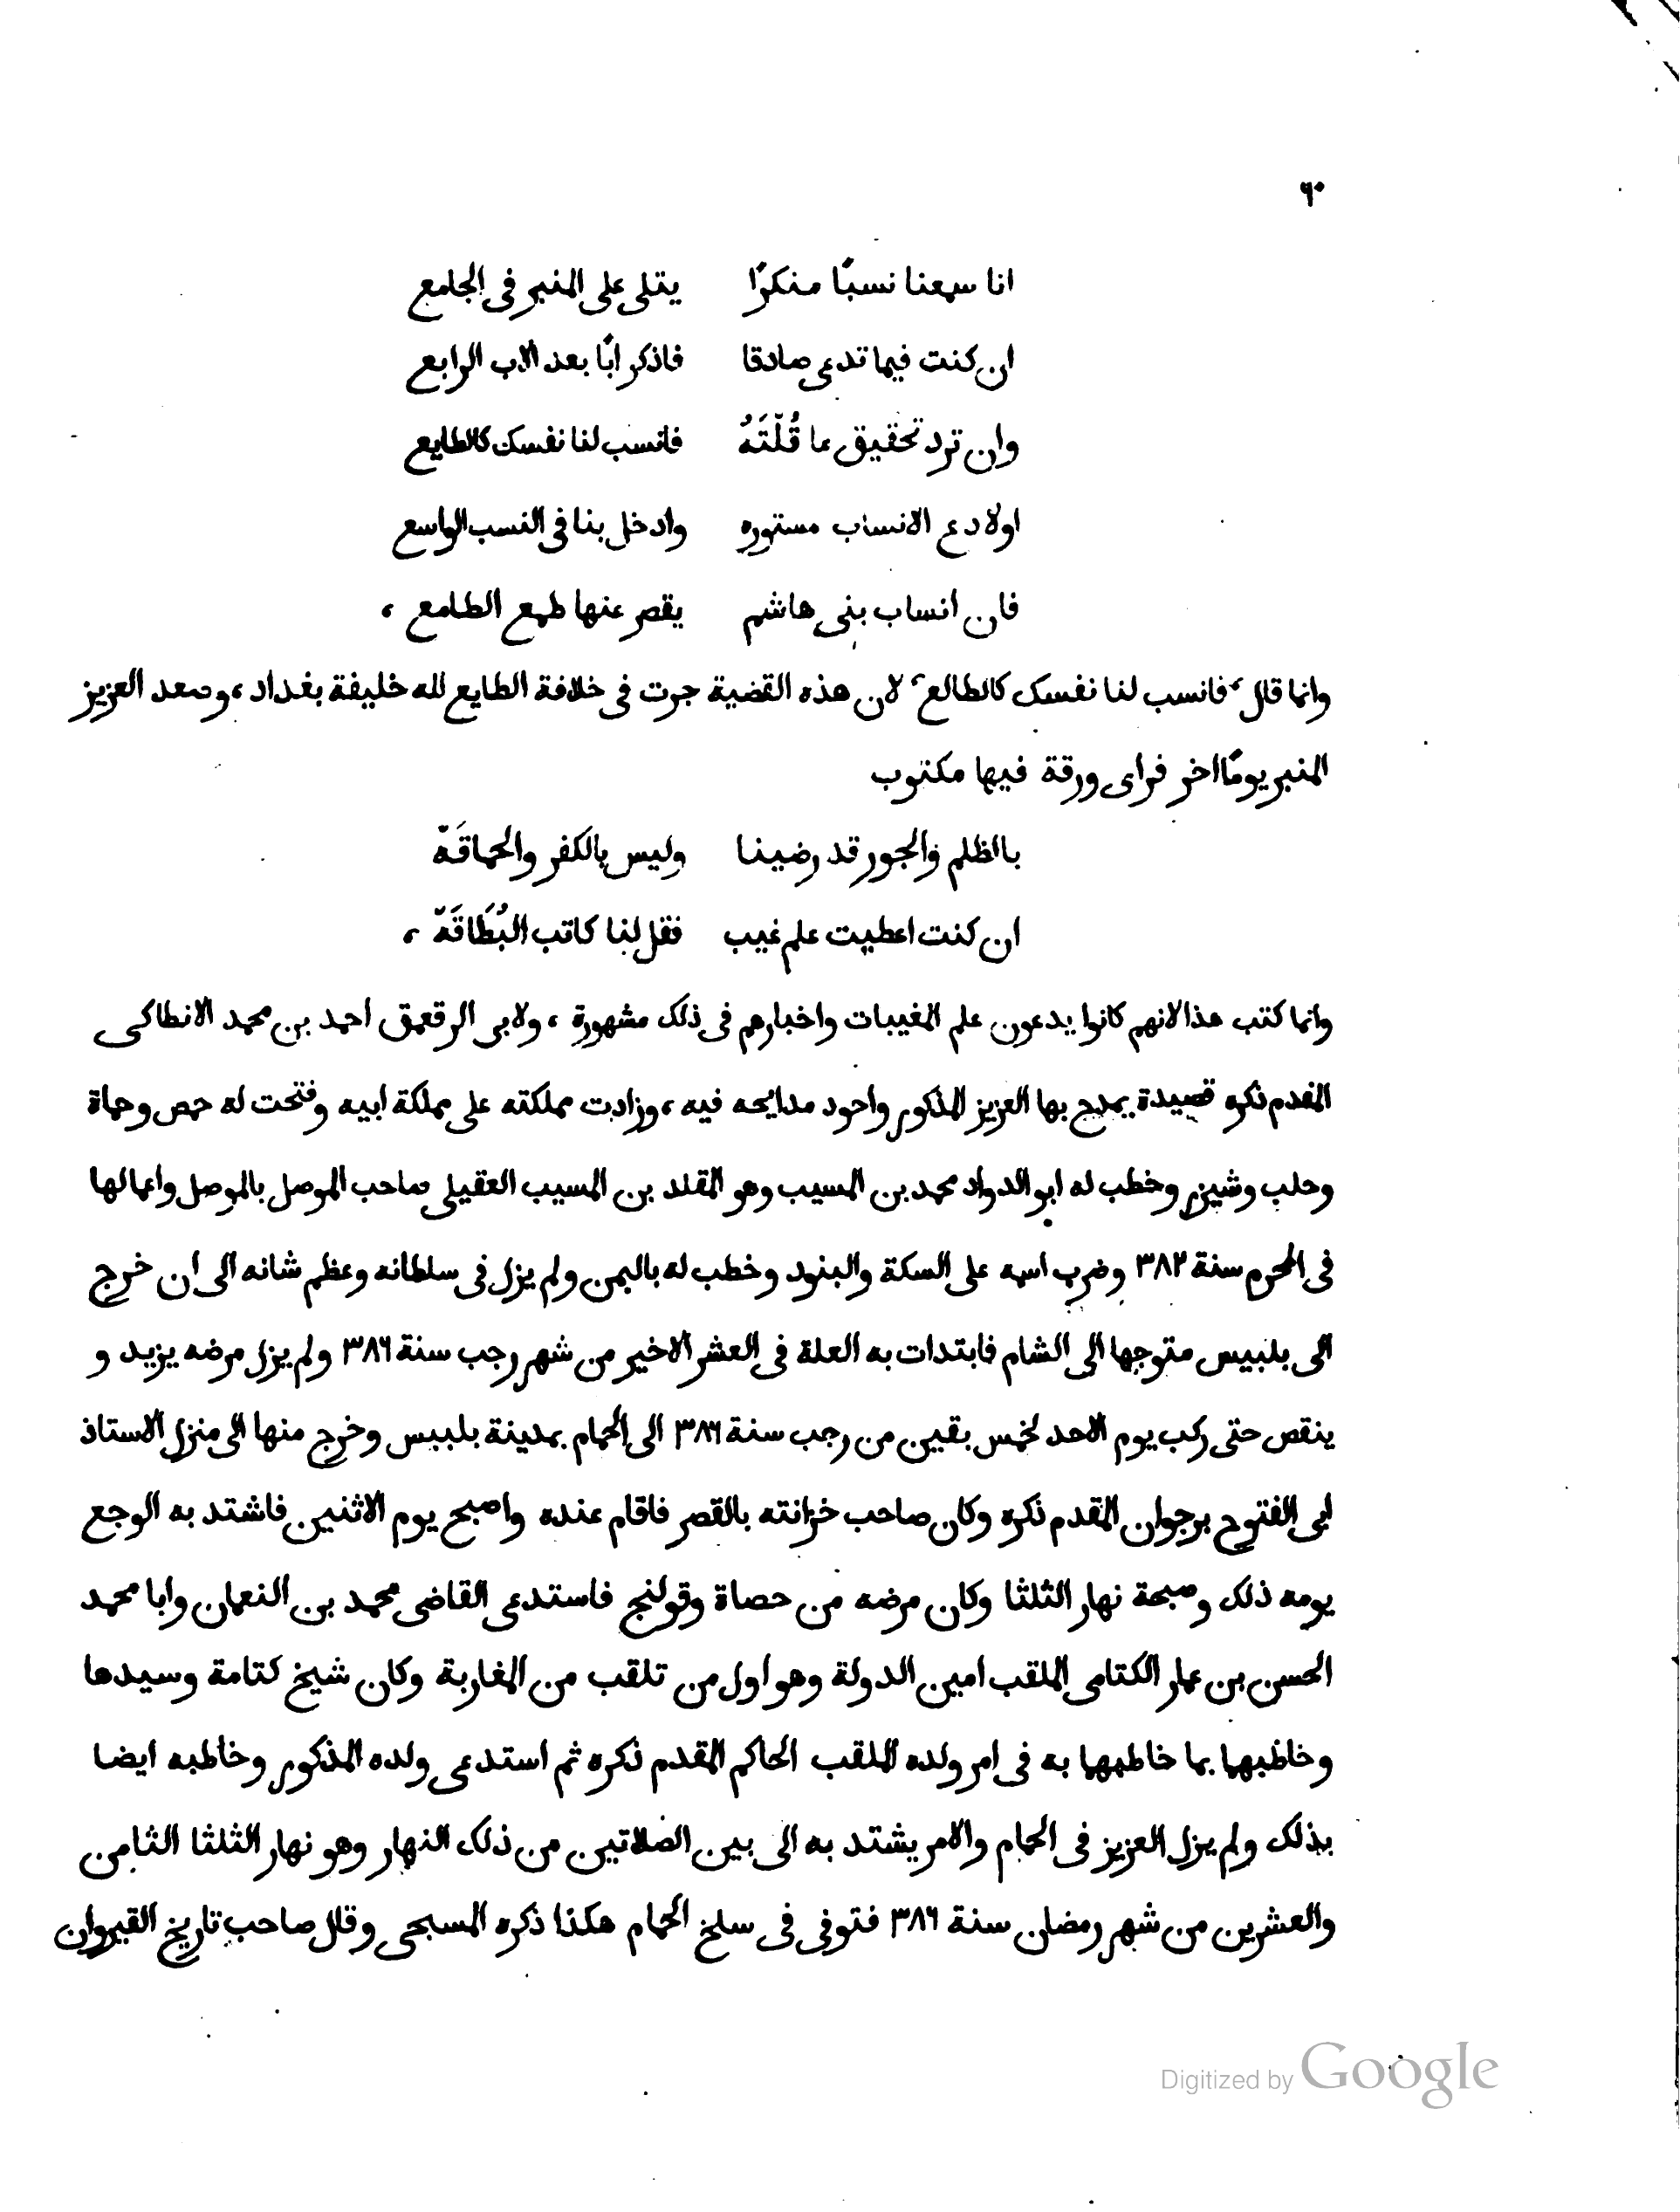 ٦٠
انا سمعنا نسبًا منكرًا يتلى على المنبر فى الجامع
ان كنت فيما تدعى صادقا فاذكر ابًا بعد الاب الرابع
وان ترد تحقيق ما قُلْتَهُ فانسب لنا نفسك كالطايع
اولا دع الانساب مستوره وادخل بنا فى النسب الواسع
فان انساب بنى هاشم يقصر عنها طمع الطامع ،
وانما قال ، فانسب لنا نفسك كالطالع ، لان هذه القضية جرت فى خلافة الطايع لله خليفة بغداد ، وصعد العزيز
المنبر يومًا اخر فراى ورقة فيها مكتوب
بالظلم والجور قد رضينا وليس بالكفر والحماقَهْ
ان كنت اعطيت علم غيب فقل لنا كاتب البُطَاقَهْ ،
وانما كتب هذا لانهم كانوا يدعون علم المغيبات واخبارهم فى ذلك مشهورة ، ولابى الرقعمق احمد بن محمد الانطاكى
المقدم ذكره قصيدة يمدح بها العزيز المذكور واجود مدايحه فيه ، وزادت مملكته على مملكة ابيه وفتحت له حمص وحماة
وحلب وشيزر وخطب له ابو الدواد محمد بن المسيب وهو المقلد بن المسيب العقيلى صاحب الموصل بالموصل واعمالها
فى المحرم سنة ٣٨٢ وضرب اسمه على السكة والبنود وخطب له باليمن ولم يزل فى سلطانه وعظم شانه الى ان خرج
الى بلبيس متوجها الى الشام فابتدات به العلة فى العشر الاخير من شهر رجب سنة ٣٨٦ ولم يزل مرضه يزيد و
ينقص حتى ركب يوم الاحد لخمس بقين من رجب سنة ٣٨٦ الى الحمام بمدينة بلبيس وخرج منها الى منزل الاستاذ
ابى الفتوح برجوان المقدم ذكره وكان صاحب خزانته بالقصر فاقام عنده واصبح يوم الاثنين فاشتد به الوجع
يومه ذلك وصبحة نهار الثلثا وكان مرضه من حصاة وقولنج فاستدعى القاضى محمد بن النعمان وابا محمد
الحسن بن عمار الكتامى الملقب امين الدولة وهو اول من تلقب من المغاربة وكان شيخ كتامة وسيدها
وخاطبهما بما خاطبهما به فى امر ولده الملقب الحاكم المقدم ذكره ثم استدعى ولده المذكور وخاطبه ايضا
بذلك ولم يزل العزيز فى الحمام والامر يشتد به الى بين الصلاتين من ذلك النهار وهو نهار الثلثا الثامن
والعشرين من شهر رمضان سنة ٣٨٦ فتوفى فى سلخ الحمام هكذا ذكره المسبحى وقال صاحب تاريخ القيروان
Digitized by Google